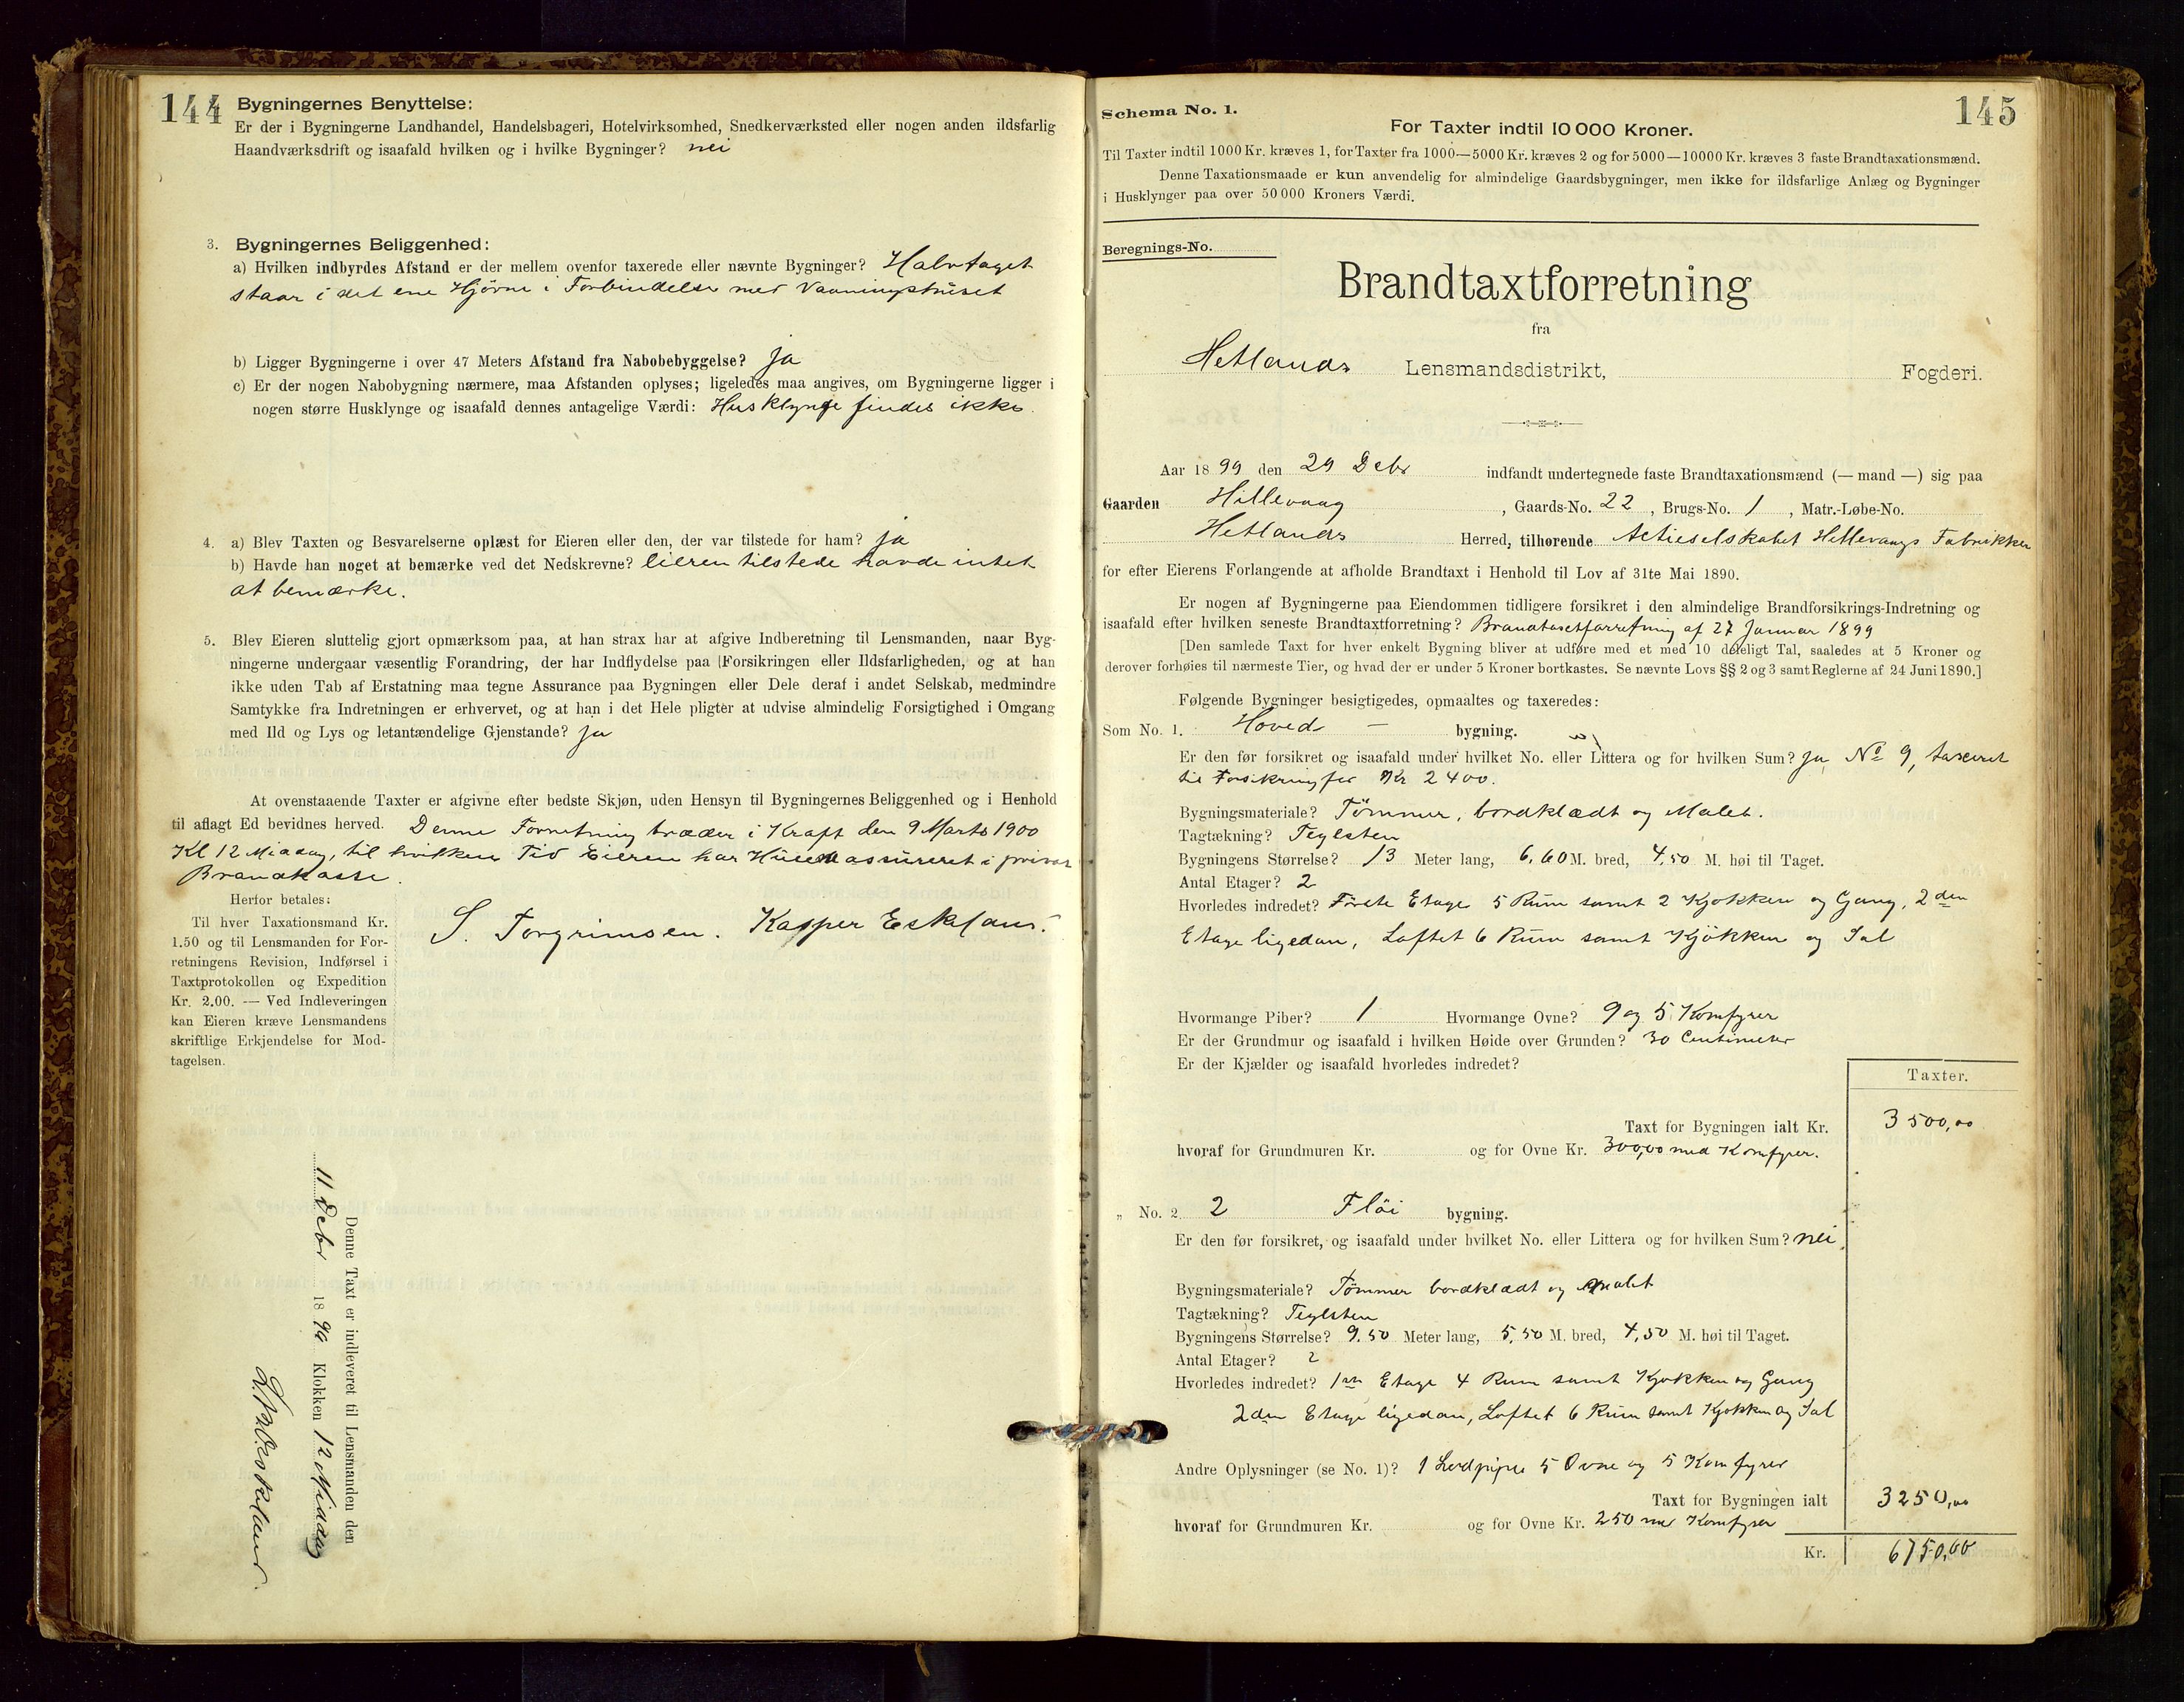 144
Bygningernes Benyttelse:
Er der i Bygningerne Landhandel, Handelsbageri, Hotelvirksomhed, Snedkerværksted eller nogen anden ildsfarlig
Haandværksdrift og isaafald hvilken og i hvilke Bygninger? nei
3. Bygningernes Beliggenhed:
a) Hvilken indbyrdes Afstand er der mellem ovenfor taxerede eller nævnte Bygninger? Halvtaget
staar i det ene Hjörne i Forbindelse med Vaaningshuset
b) Ligger Bygningerne i over 47 Meters Afstand fra Nabobebyggelse? ja
c) Er der nogen Nabobygning nærmere, maa Afstanden oplyses; ligeledes maa angives, om Bygningerne ligger i
nogen større Husklynge og isaafald dennes antagelige Værdi: Husklynge findes ikke.
4. a) Blev Taxten og Besvarelserne oplæst for Eieren eller den, der var tilstede for ham? ja
b) Havde han noget at bemærke ved det Nedskrevne? Eieren tilstede havde intet
at bemærke.
5. Blev Eieren sluttelig gjort opmærksom paa, at han strax har at afgive Indberetning til Lensmanden, naar Byg-
ningerne undergaar væsentlig Forandring, der har Indflydelse paa Forsikringen eller Ildsfarligheden, og at han
ikke uden Tab af Erstatning maa tegne Assurance paa Bygningen eller Dele deraf i andet Selskab, medmindre
Samtykke fra Indretningen er erhvervet, og at han i det Hele pligter at udvise almindelig Forsigtighed i Omgang
med Ild og Lys og letantændelige Gjenstande? ja
At ovenstaaende Taxter er afgivne efter bedste Skjøn, uden Hensyn til Bygningernes Beliggenhed og i Henhold
til aflagt Ed bevidnes herved. Denne Forretning træder i Kraft den 9 Marts 1900
Kl 12 Middag, til hvilken Tid Eieren har Husene assureret i privat
Brandkasse.
Herfor betales:
Til hver Taxationsmand Kr.
1.50 og til Lensmanden for For-
retningens Revision, Indførsel i
Taxtprotokollen og Expedition
Kr. 2.00. — Ved Indleveringen
kan Eieren kræve Lensmandens
skriftlige Erkjendelse for Mod-
tagelsen.
S. Torgrimsen. Kasper Eskeland.
Denne Taxt er indleveret til Lensmanden den
11 Debr 1899 Klokken 12 Middag
145
Schema No. 1.
For Taxter indtil 10000 Kroner.
Til Taxter indtil 1000 Kr. kræves 1, for Taxter fra 1000—5000 Kr. kræves 2 og for 5000—10000 Kr. kræves 3 faste Brandtaxationsmænd.
Denne Taxationsmaade er kun anvendelig for almindelige Gaardsbygninger, men ikke for ildsfarlige Anlæg og Bygninger
i Husklynger paa over 50000 Kroners Værdi.
Beregnings-No.
Brandtaxtforretning
fra
Hetlands Lensmandsdistrikt, Fogderi.
Aar 1899 den 29 Debr indfandt undertegnede faste Brandtaxationsmænd (— mand —) sig paa
Gaarden Hillevaag, Gaards-No. 22, Brugs-No. 1, Matr.-Løbe-No.
Hetlands Herred, tilhørende Actieselskabet Hillevaags Fabrikker
for efter Eierens Forlangende at afholde Brandtaxt i Henhold til Lov af 31te Mai 1890.
Er nogen af Bygningerne paa Eiendommen tidligere forsikret i den almindelige Brandforsikrings-Indretning og
isaafald efter hvilken seneste Brandtaxtforretning? Brandtaxtforretning af 27 Januar 1899
[Den samlede Taxt for hver enkelt Bygning bliver at udføre med et med 10 deleligt Tal, saaledes at 5 Kroner og
derover forhøies til nærmeste Tier, og hvad der er under 5 Kroner bortkastes. Se nævnte Lovs §§ 2 og 3 samt Reglerne af 24 Juni 1890.]
Følgende Bygninger besigtigedes, opmaaltes og taxeredes:
Som No. 1. Hoved — bygning.
Er den før forsikret og isaafald under hvilket No. eller Littera og for hvilken Sum? Ja, No 9, taxeret
til Forsikring for Kr 2400.
Bygningsmateriale? Tömmer, bordklædt og Malet.
Tagtækning? Teglsten
Bygningens Størrelse? 13 Meter lang, 6,60 M. bred, 4,50 M. høi til Taget.
Antal Etager? 2
Hvorledes indredet? Förste Etage 5 Rum samt 2 Kjøkken og Gang, 2den
Etage ligedan, Loftet 6 Rum samt Kjøkken og Sal
Hvormange Piber? 1 Hvormange Ovne? 9 og 5 Komfyrer
Er der Grundmur og isaafald i hvilken Høide over Grunden? 30 Centimeter
Er der Kjælder og isaafald hvorledes indredet?
Taxter.
Taxt for Bygningen ialt Kr. 3500,00
hvoraf for Grundmuren Kr. og for Ovne Kr. 300,00 med Komfyrer.
„ No. 2 2 Flöi bygning.
Er den før forsikret, og isaafald under hvilket No. eller Littera og for hvilken Sum? nei
Bygningsmateriale? Tömmer bordklædt og malet
Tagtækning? Teglsten
Bygningens Størrelse? 9.50 Meter lang, 5,50 M. bred, 4,50 M. høi til Taget.
Antal Etager? 2
Hvorledes indredet? 1ste Etage 4 Rum samt Kjøkken og Gang
2den Etage ligedan, Loftet 6 Rum samt Kjøkken og Sal
Andre Oplysninger (se No. 1)? 1 5 Ovne og 5 Komfyrer
Taxt for Bygningen ialt 3250,00
hvoraf for Grundmuren Kr. og for Ovne Kr. 250 med Komfyrer
Kr. 6750,00